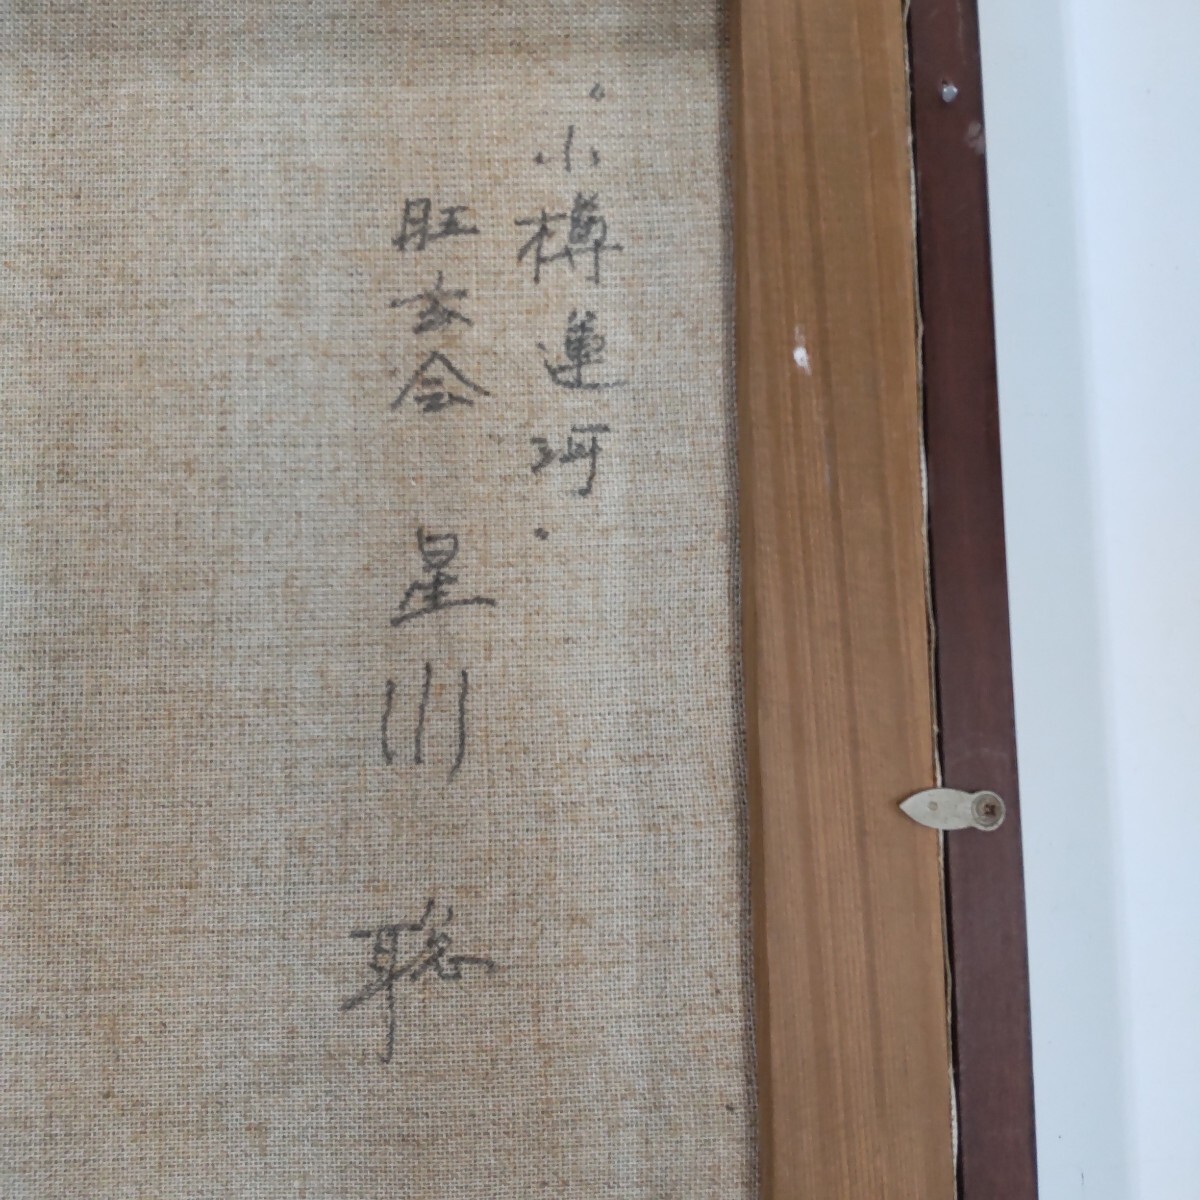 “小樽運河.
旺玄会 星川 聡